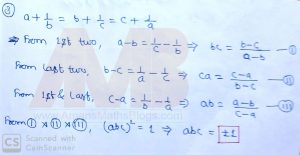 ③
a + 1/b = b + 1/c = c + 1/a
⇒ From 1st two, a-b = 1/c - 1/b ⇒ bc = (b-c)/(a-b) —(I)
From last two, b-c = 1/a - 1/c ⇒ ca = (c-a)/(b-c) —(II)
From 1st & last, c-a = 1/b - 1/a ⇒ ab = (a-b)/(c-a) —(III)
From (I) × (II) × (III), (abc)² = 1 ⇒ abc = ±1
CS Scanned with
CamScanner